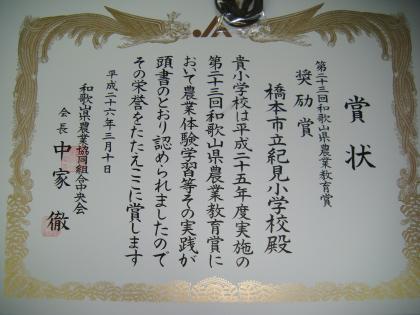 賞状
第二十三回和歌山県農業教育賞
奨励賞
橋本市立紀見小学校殿
貴小学校は平成二十五年度実施の
第二十三回和歌山県農業教育賞に
おいて農業体験学習等その実践が
頭書のとおり認められましたので
その栄誉をたたえここに賞します
平成二十六年三月十日
和歌山県農業協同組合中央会
会長 中家徹